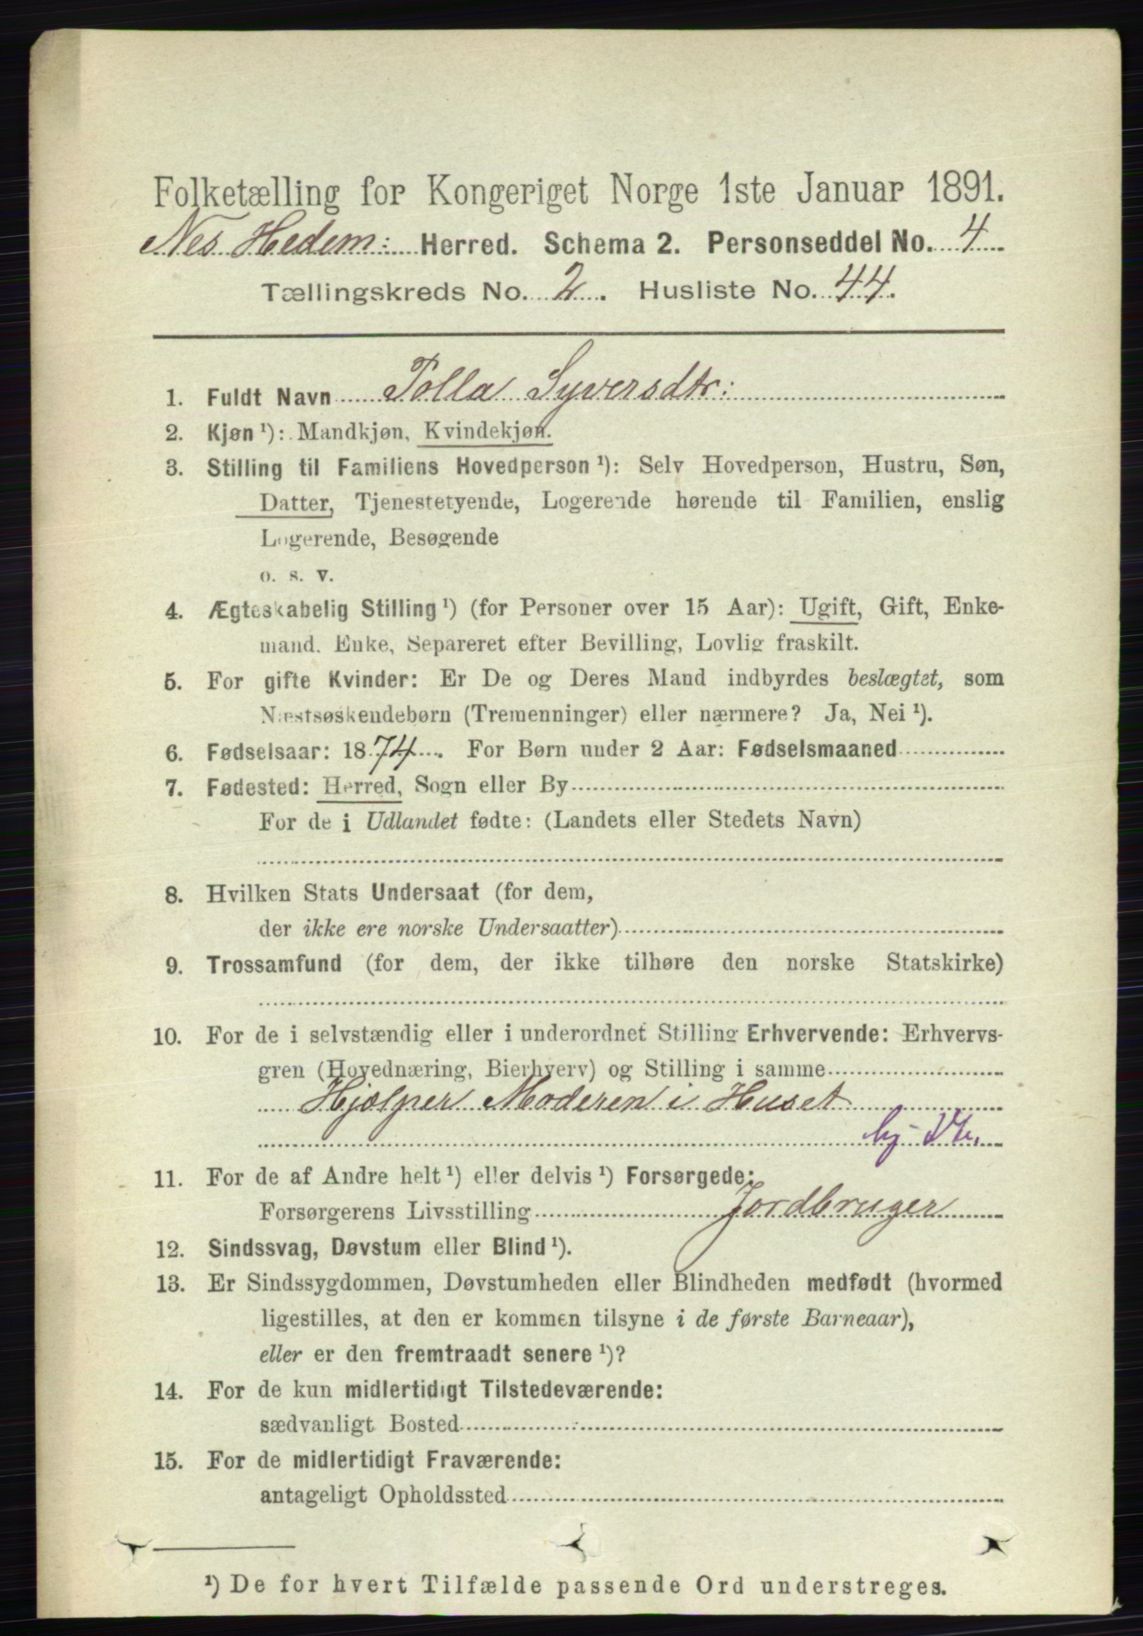 Folketælling for Kongeriget Norge 1ste Januar 1891.
Nes Hedem: Herred. Schema 2. Personseddel No. 4
Tællingskreds No. 2. Husliste No. 44.
1. Fuldt Navn Polla Syversdtr:
2. Kjøn ¹): Mandkjøn, Kvindekjøn.
3. Stilling til Familiens Hovedperson ¹): Selv Hovedperson, Hustru, Søn,
Datter, Tjenestetyende, Logerende hørende til Familien, enslig
Logerende, Besøgende
o. s. v.
4. Ægteskabelig Stilling ¹) (for Personer over 15 Aar): Ugift, Gift, Enke-
mand, Enke, Separeret efter Bevilling, Lovlig fraskilt.
5. For gifte Kvinder: Er De og Deres Mand indbyrdes beslægtet, som
Næstsøskendebørn (Tremenninger) eller nærmere? Ja, Nei ¹).
6. Fødselsaar: 1874. For Børn under 2 Aar: Fødselsmaaned
7. Fødested: Herred, Sogn eller By
For de i Udlandet fødte: (Landets eller Stedets Navn)
8. Hvilken Stats Undersaat (for dem,
der ikke ere norske Undersaatter)
9. Trossamfund (for dem, der ikke tilhøre den norske Statskirke)
10. For de i selvstændig eller i underordnet Stilling Erhvervende: Erhvervs-
gren (Hovednæring, Bierhverv) og Stilling i samme
Hjælper Moderen i Huset
11. For de af Andre helt ¹) eller delvis ¹) Forsørgede:
Forsørgerens Livsstilling Jordbruger
12. Sindssvag, Døvstum eller Blind ¹).
13. Er Sindssygdommen, Døvstumheden eller Blindheden medfødt (hvormed
ligestilles, at den er kommen tilsyne i de første Barneaar),
eller er den fremtraadt senere ¹)?
14. For de kun midlertidigt Tilstedeværende:
sædvanligt Bosted
15. For de midlertidigt Fraværende:
antageligt Opholdssted
¹) De for hvert Tilfælde passende Ord understreges.